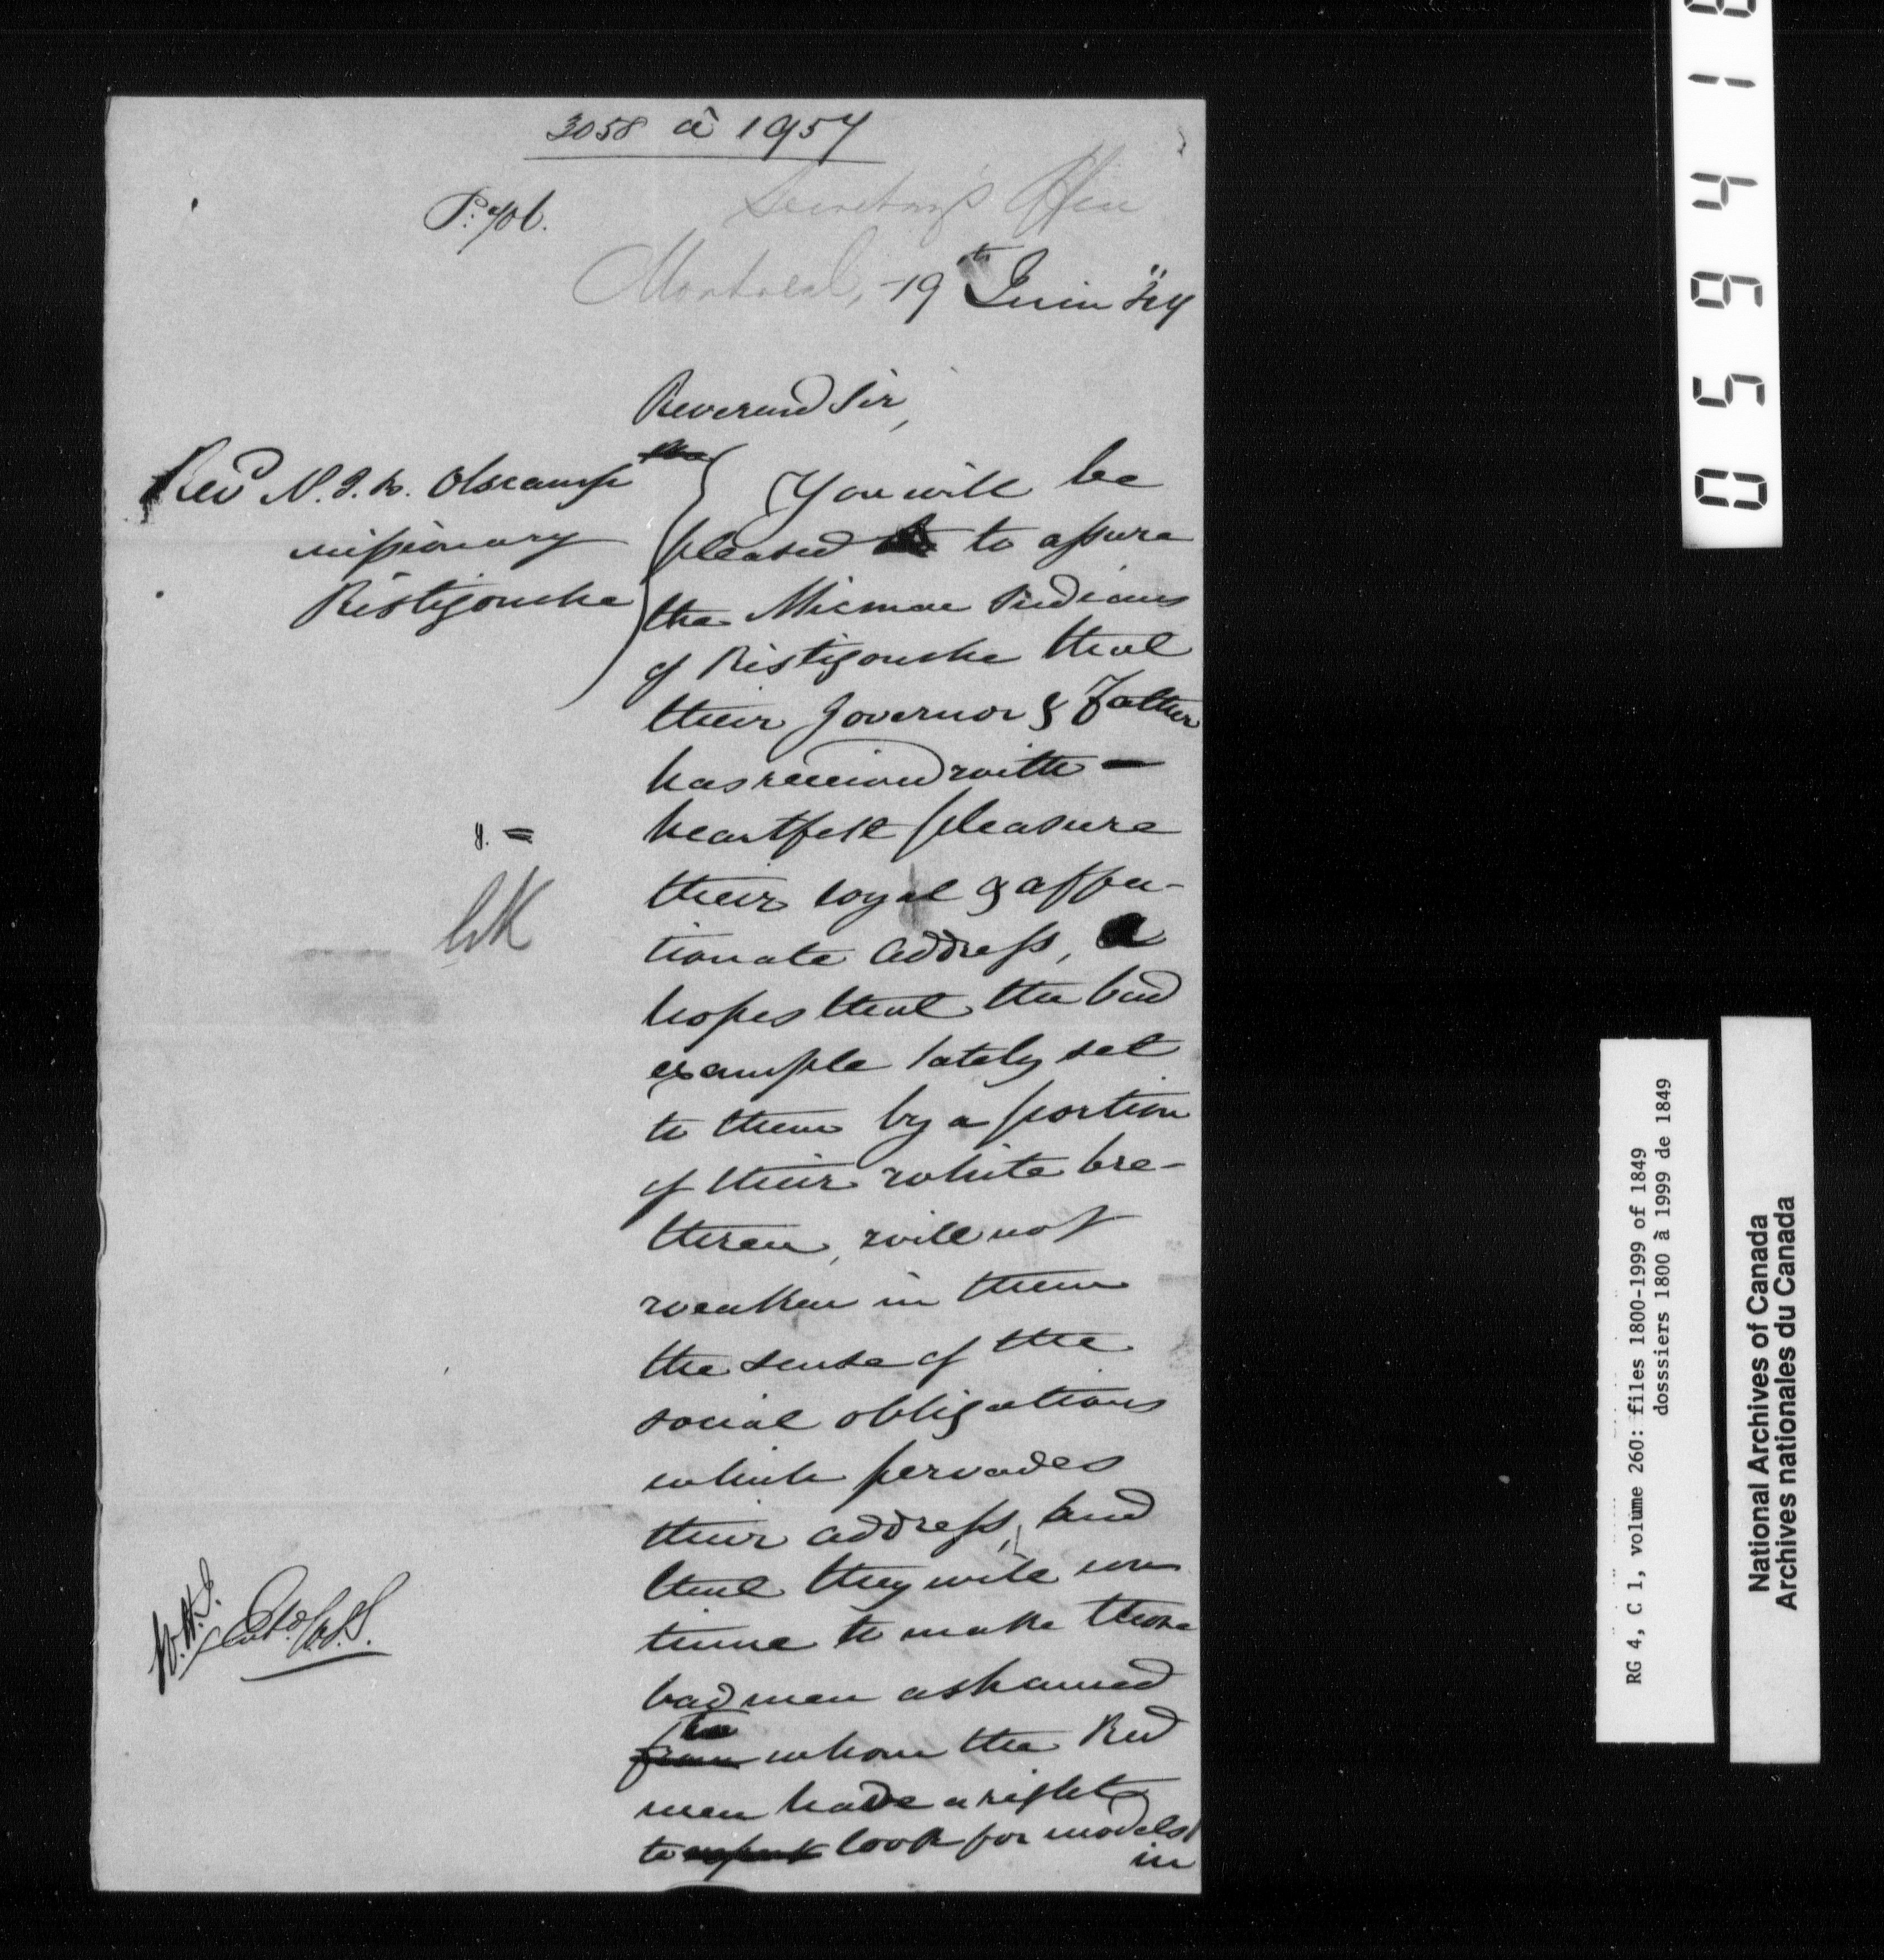 3058 à 1957
P. 706.
Secretary's Office
Montreal, 19th Juin
Reverend Sir,
Revd N. Olscamp
missionary
Ristigouche
You will be
pleased to assure
the Micmac Indians
of Ristigouche that
their Governor & Father
has received with
heartfelt pleasure
their loyal & affec-
tionate address, &
hopes that the bad
example lately set
to them by a portion
of their white bre-
thren, will not
weaken in them
the sense of the
social obligations
which pervades
their address, and
that they will con
tinue to make those
bad men ashamed
from to whom the Red
men have a right
to expect look for models
in
National Archives of Canada
Archives nationales du Canada
RG 4, C 1, volume 260: files 1800-1999 of 1849
dosssiers 1800 à 1999 de 1849